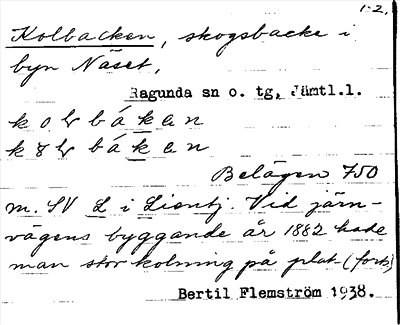 1-2.
Kolbacken, skogsbacke i
byn Näset,
Ragunda sn o. tg, Jämtl.l.
Belägen 750
m. SV L i Liontj. Vid järn-
vägens byggande år 1882 hade
man stor kolning på plat- (forts)
Bertil Flemström 1938.